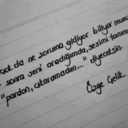 çok da ne zoruma gidiyor biliyor musun
sonra seni aradığımda, sesimi tanıma
"pardon, çıkaramadım..." diyeceksin.
Özge Çelik